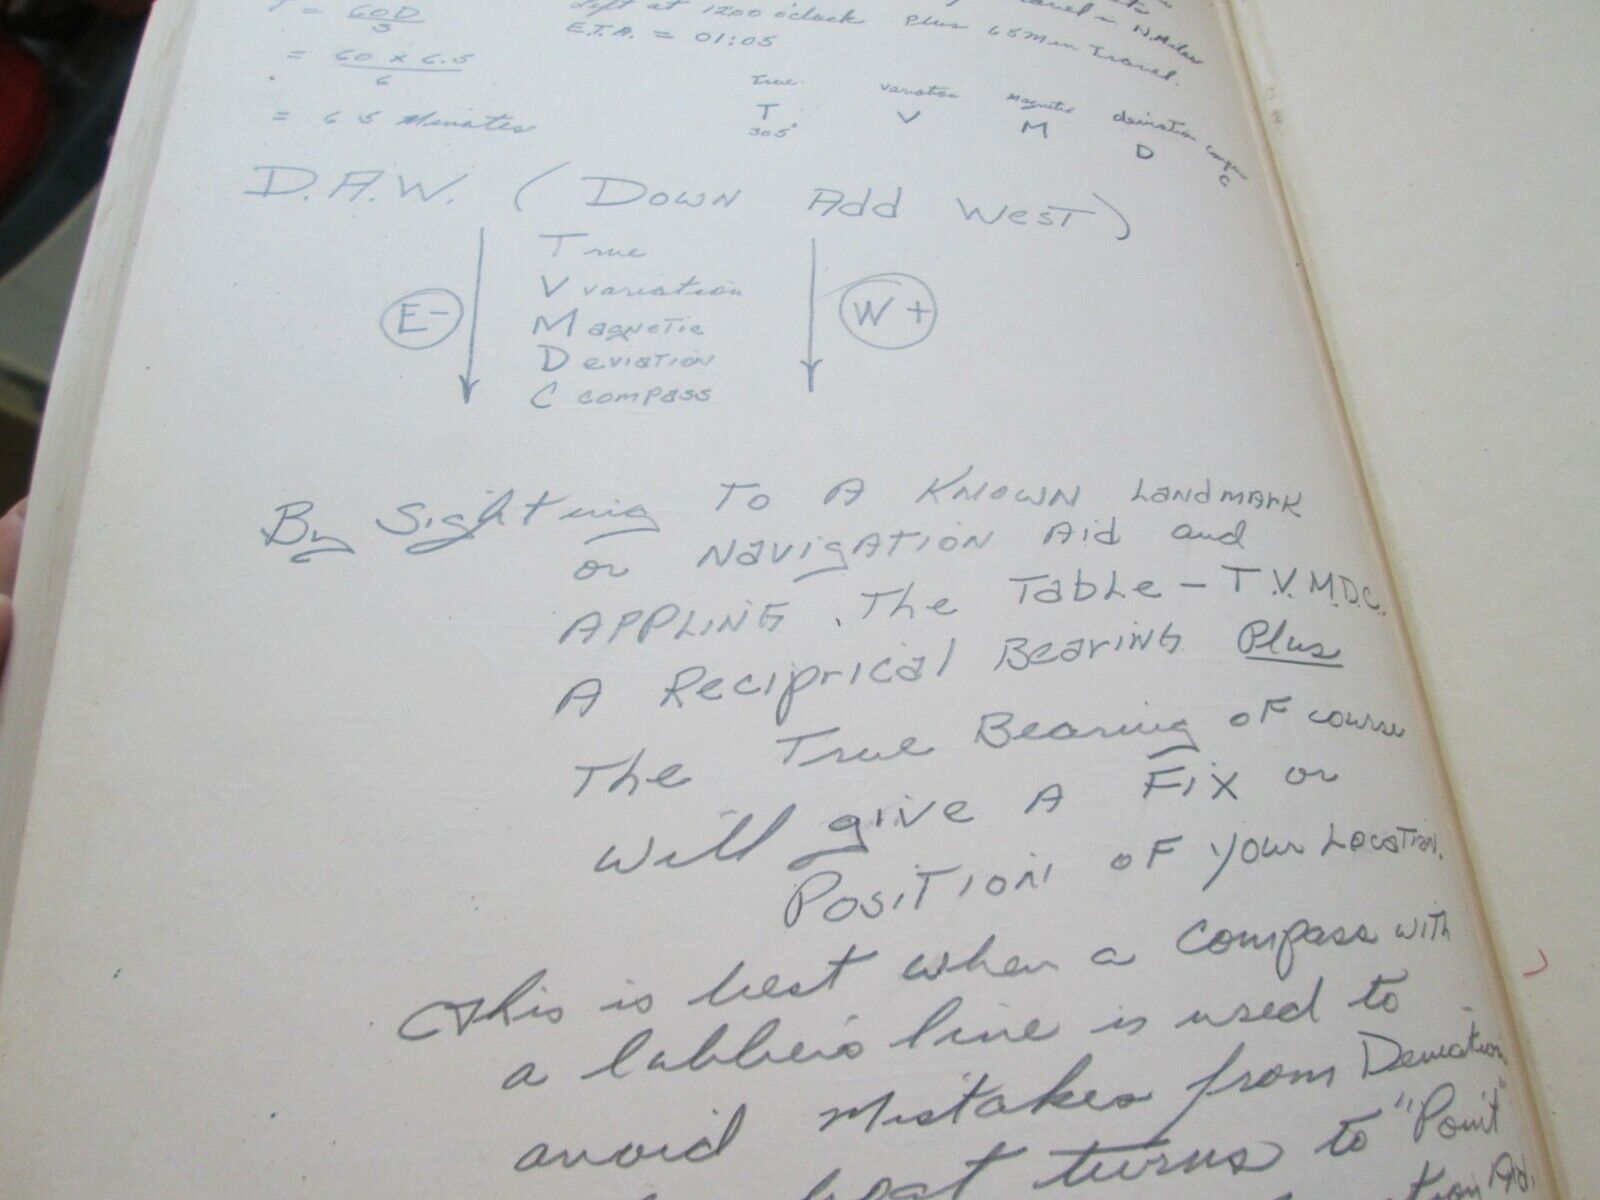 T = 60D
S
= 60 x 6.5
6
= 65 Minutes
travel in N. Miles
Left at 1200 o'clock Plus 65 Min Travel.
E.T.A. = 01:05
True variation Magnetic deviation compass
T V M D C
305°
D.A.W. ( Down Add West)
True
V variation
E- Magnetic W+
Deviation
C compass
By Sighting To A Known Landmark
or Navigation Aid and
APPLING The Table - T.V.M.D.C.
A Reciprical Bearing Plus
The True Bearing of course
will give A Fix or
Position of your Location.
This is best when a compass with
a lubber's line is used to
avoid mistakes from Deviation
boat turns to "Point"
Aid.